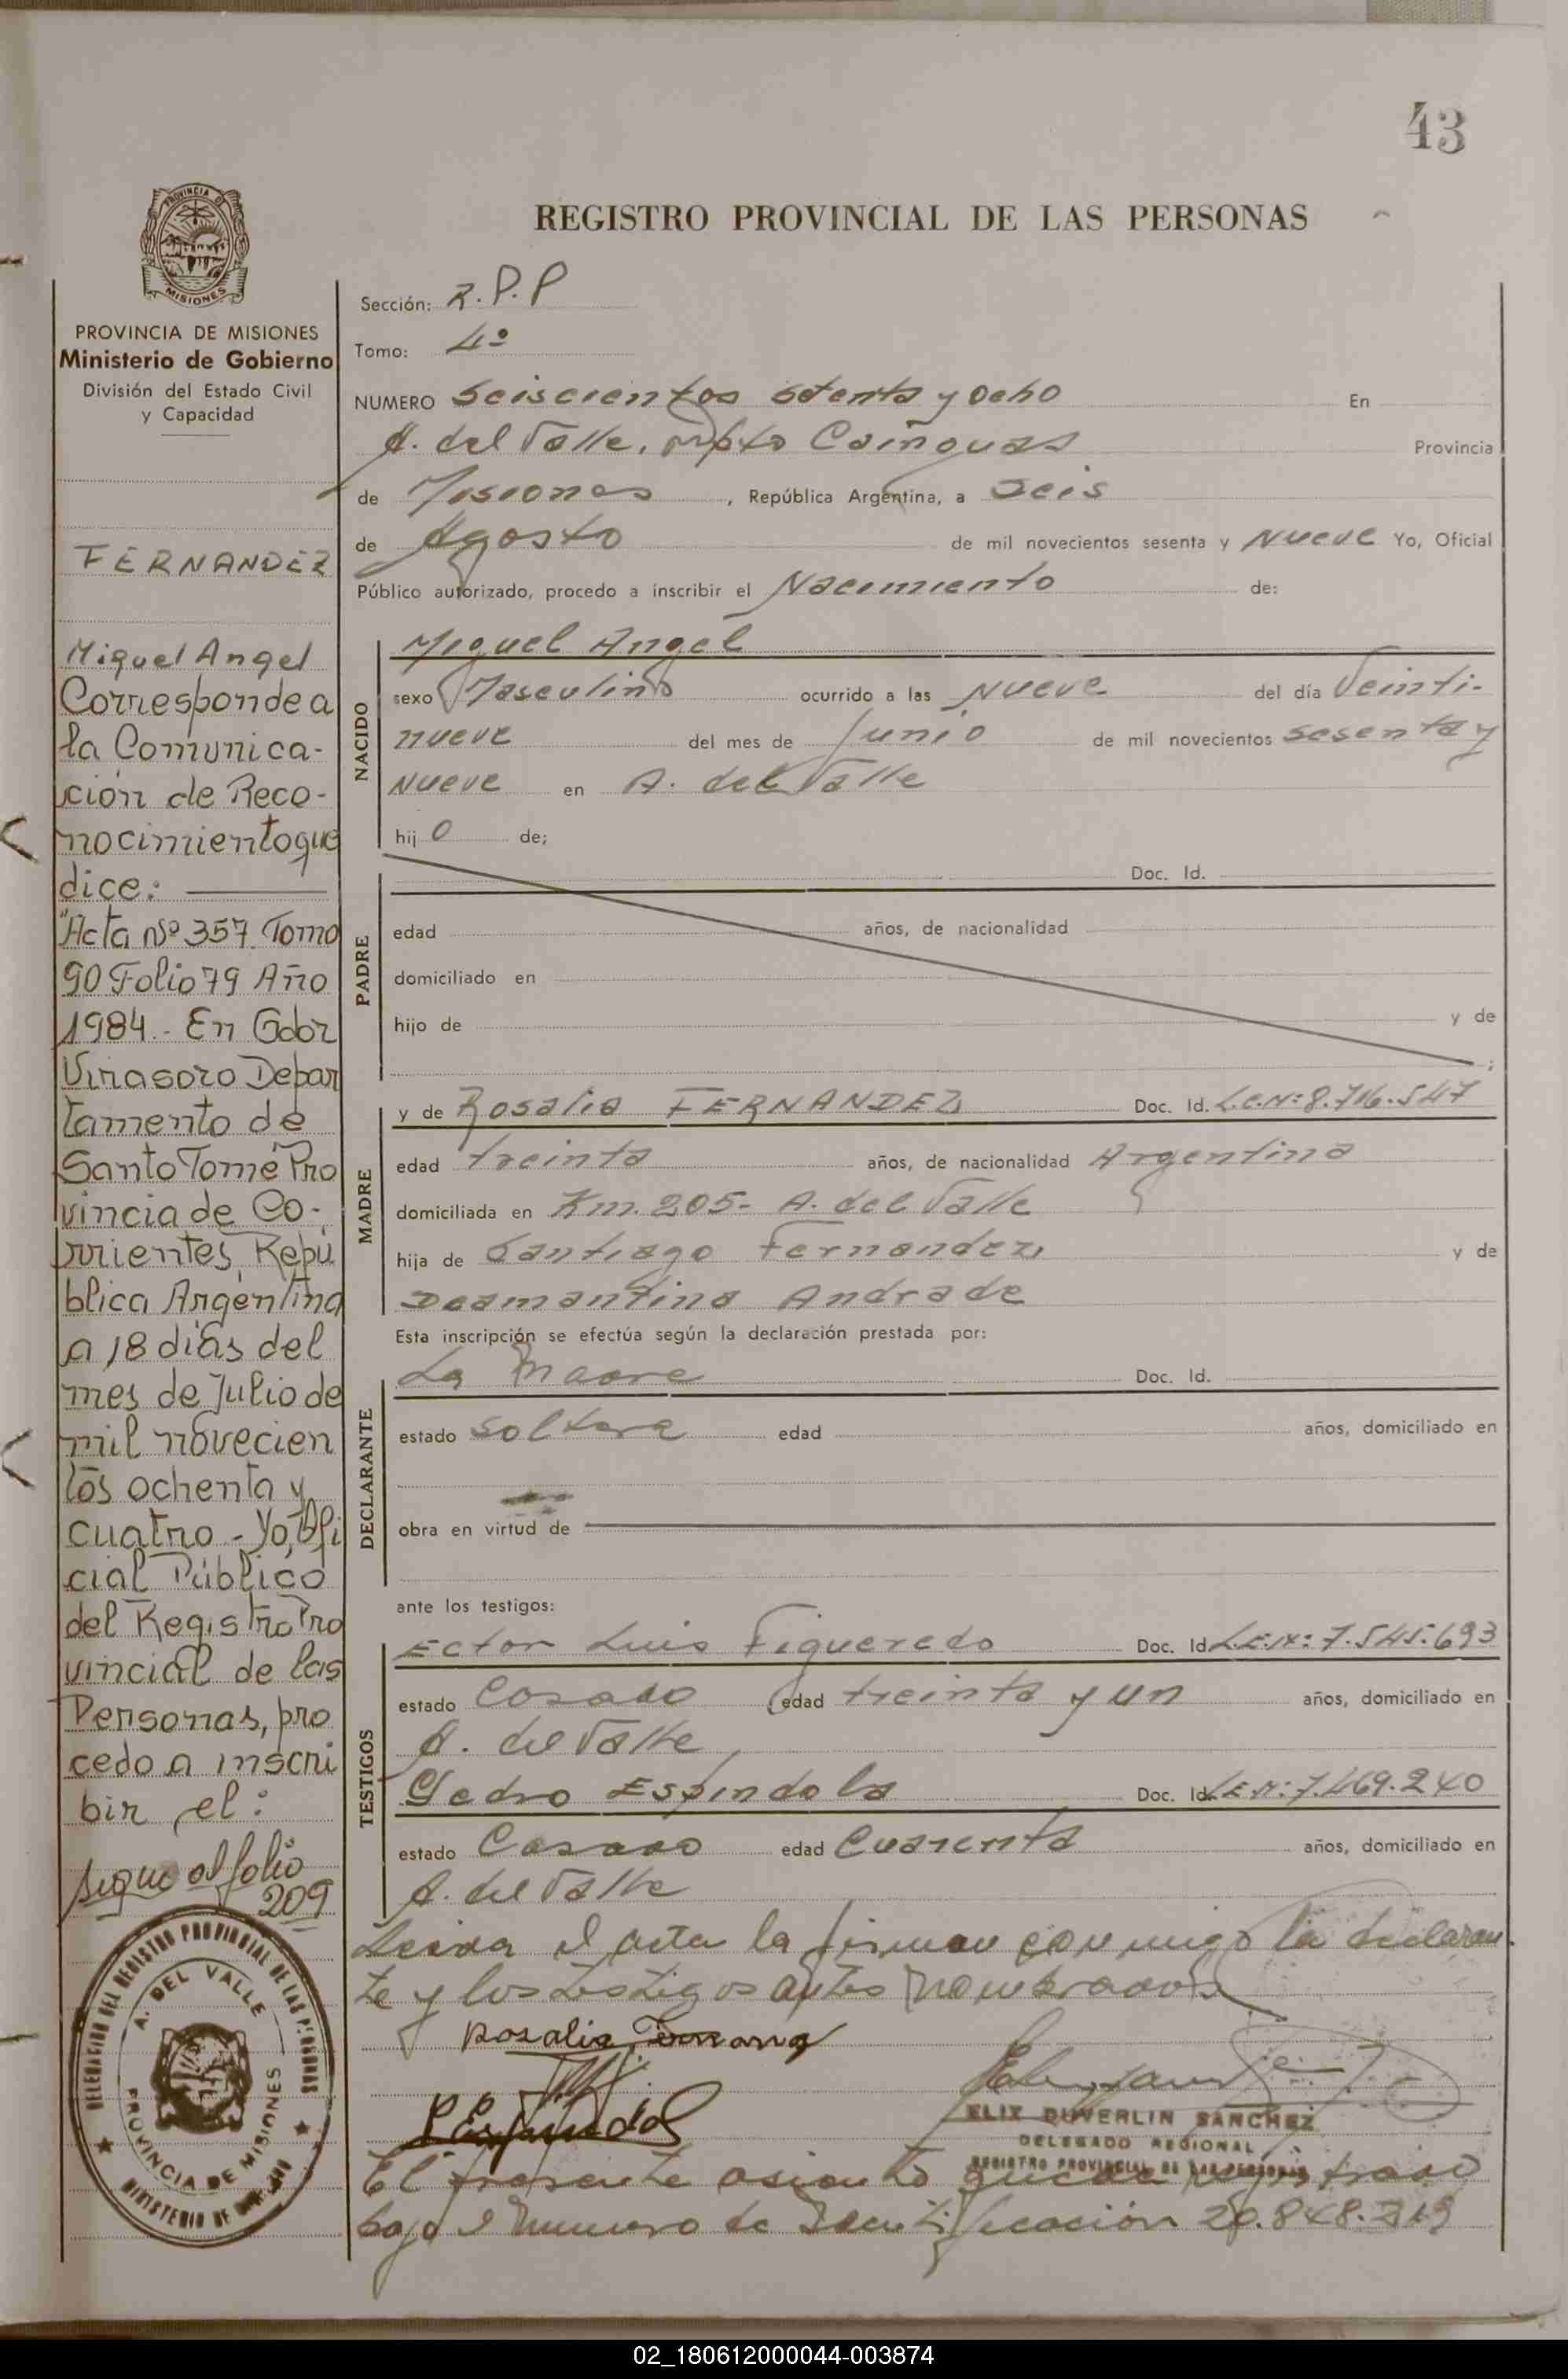 43
PROVINCIA DE
MISIONES
PROVINCIA DE MISIONES
Ministerio de Gobierno
División del Estado Civil
y Capacidad
FERNANDEZ
Miguel Angel
Corresponde a
la Comunica-
ción de Reco-
nocimiento que
dice:
"Acta Nº 357 Tomo
90 Folio 79 Año
1984.- En Gdor
Virasoro Depar
tamento de
Santo Tomé Pro
vincia de Co-
rrientes, Repú
blica Argentina
a 18 días del
mes de Julio de
mil novecien
tos ochenta y
cuatro - Yo, Ofi
cial Público
del Registro Pro
vincial de las
Personas, pro
cedo a inscri
bir el:
sigue al folio
209
DELEGACION DEL REGISTRO PROVINCIAL DE LAS PERSONAS
A. DEL VALLE
PROVINCIA DE MISIONES
MINISTERIO DE
REGISTRO PROVINCIAL DE LAS PERSONAS
Sección: R.P.P
Tomo: 4º
NUMERO Seiscientos setenta y ocho En
A. del Valle, Dpto Cainguas Provincia
de Misiones, República Argentina, a Seis
de Agosto de mil novecientos sesenta y Nueve Yo, Oficial
Público autorizado, procedo a inscribir el Nacimiento de:
NACIDO
Miguel Angel
sexo Masculino ocurrido a las Nueve del día Veinti-
nueve del mes de Junio de mil novecientos sesenta y
Nueve en A. del Valle
hijo de;
PADRE
Doc. Id.
edad años, de nacionalidad
domiciliado en
hijo de y de
;
MADRE
y de Rosalia FERNANDEZ Doc. Id. L.C.Nº: 8.716.547
edad treinta años, de nacionalidad Argentina
domiciliada en Km. 205- A. del Valle
hija de Santiago Fernandez y de
Deamantina Andrade
Esta inscripción se efectúa según la declaración prestada por:
DECLARANTE
La Madre Doc. Id.
estado soltera edad años, domiciliado en
obra en virtud de
ante los testigos:
TESTIGOS
Ector Luis Figueredo Doc. Id. L.E.Nº: 7.545.693
estado Casado edad treinta y un años, domiciliado en
A. del Valle
Pedro Espindola Doc. Id. L.E.Nº: 7.469.240
estado Casado edad Cuarenta años, domiciliado en
A. del Valle
Leida el acta la firman conmigo la declaran-
te y los testigos antes nombrados
Rosalia
ELIX DUVERLIN SANCHEZ
DELEGADO REGIONAL
REGISTRO PROVINCIAL DE LAS PERSONAS
El presente asiento queda registrado
bajo el Numero de Identificación
02_180612000044-003874